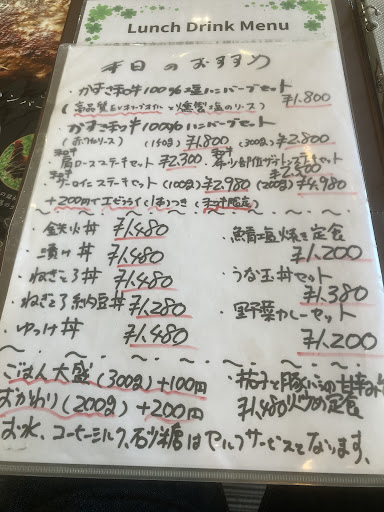 Lunch Drink Menu
本日のおすすめ
・かずさ和牛100%塩ハンバーグセット
(高品質EVオリーブオイルと燻製塩のソース) ¥1.800
・かずさ和牛100%ハンバーグセット
(赤ワインソース) (150g) ¥1.800 (300g) ¥2.800
・和牛肩ロースステーキセット ¥2.300
・和牛希少部位ザブトンステーキセット ¥2.500
・和牛サーロインステーキセット (100g) ¥2.980 (200g) ¥4.980
+200円でエビフライ(1本)つき
・鉄火丼 ¥1.480
・漬け丼 ¥1.480
・ねぎとろ丼 ¥1.480
・ねぎとろ納豆丼 ¥1.280
・ゆっけ丼 ¥1.480
・鯖塩焼き定食 ¥1.200
・うな玉丼セット ¥1.380
・野菜カレーセット ¥1.200
ごはん大盛(300g)+100円
おかわり(200g)+200円
・茄子と豚バラの甘辛み
¥1.480 定食
お水、コーヒーミルク、石少糖はセルフサービスとなります、